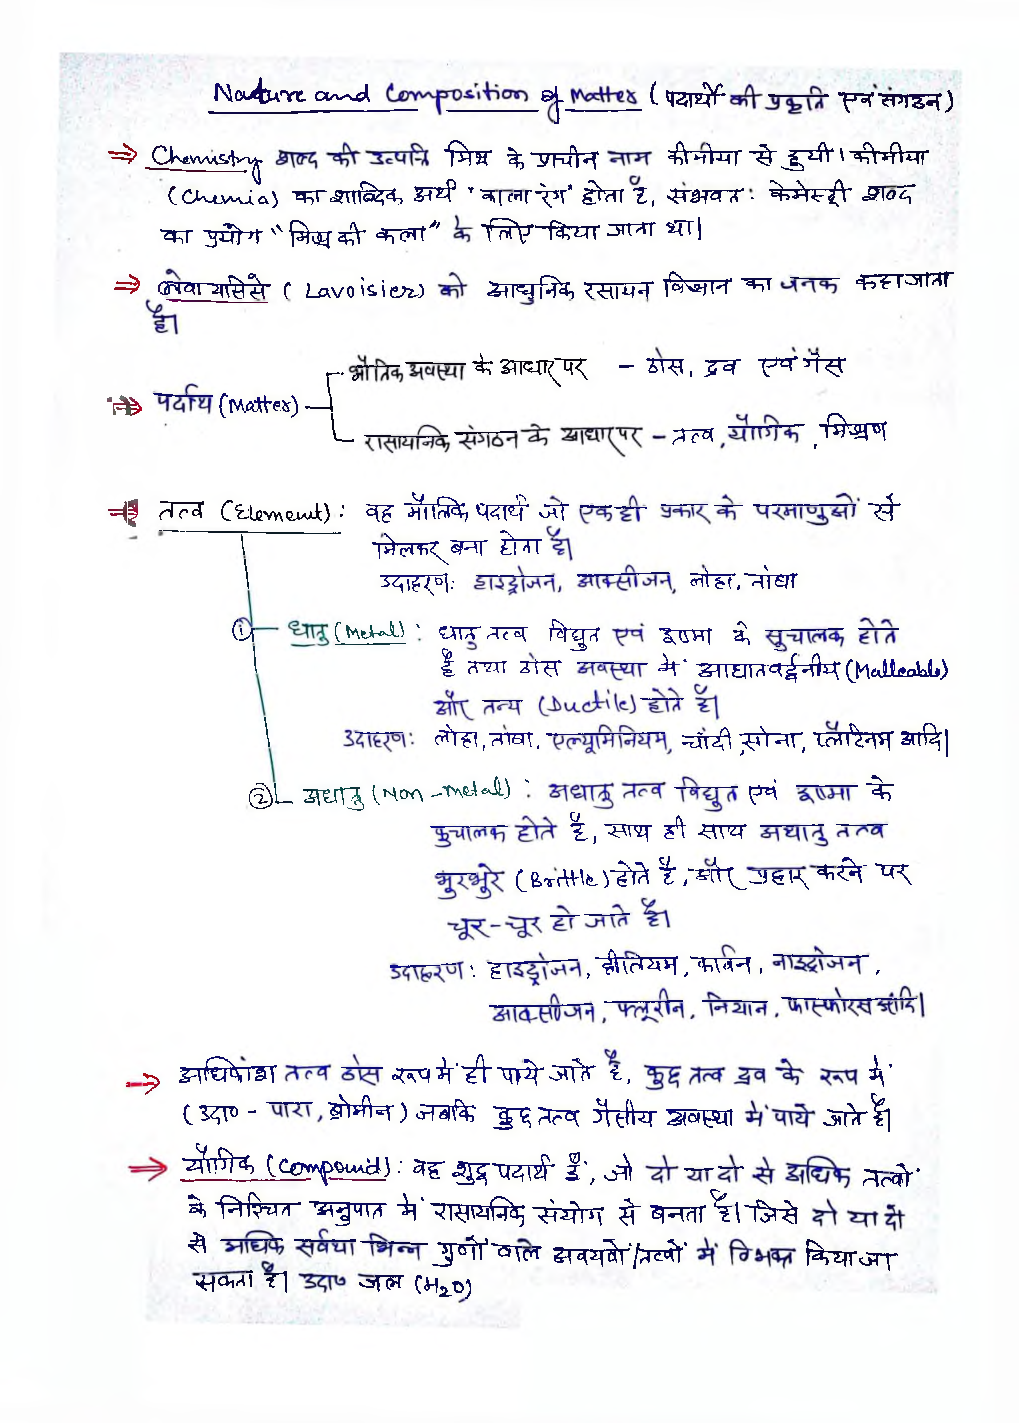 Nature and Composition of Matter (पदार्थो की प्रकृति एवं संगठन)
⇒ Chemistry शब्द की उत्पत्ति मिश्र के प्राचीन नाम कीमीया से हुयी। कीमीया
(Chemia) का शाब्दिक अर्थ 'काला रंग' होता है, संभवत: केमेस्ट्री शब्द
का प्रयोग "मिश्र की कला" के लिए किया जाता था।
⇒ लेवायसिसे (Lavoisier) को आधुनिक रसायन विज्ञान का जनक कहा जाता
है।
भौतिक अवस्था के आधार पर - ठोस, द्रव एवं गैस
⇒ पर्दाथ (Matter)
रासायनिक संगठन के आधार पर - तत्व, यौगिक, मिश्रण
⇒ तत्व (Element): वह मौलिक पदार्थ जो एक ही प्रकार के परमाणुओं से
मिलकर बना होता है।
उदाहरण: हाइड्रोजन, आक्सीजन, लोहा, तांबा
① धातु (Metal): धातु तत्व विद्युत एवं इष्मा के सुचालक होते
है तथा ठोस अवस्था में आघातवर्द्धनीय (Malleable)
और तन्य (Ductile) होते है।
उदाहरण: लोहा, तांबा, एल्यूमिनियम, चाँदी, सोना, प्लैटिनम आदि।
② अधातु (Non-metal): अधातु तत्व विद्युत एवं इष्मा के
कुचालक होते है, साथ ही साथ अधातु तत्व
भुरभुरे (Brittle) होते है, और प्रहार करने पर
चूर-चूर हो जाते है।
उदाहरण: हाइड्रोजन, हीलियम, कार्बन, नाइट्रोजन,
आक्सीजन, फ्लूरीन, नियान, फास्फोरस आदि।
→ अधिकांश तत्व ठोस रूप में ही पाये जाते है, कुछ तत्व द्रव के रूप में
(उदा० - पारा, ब्रोमीन) जबकि कुछ तत्व गैसीय अवस्था में पाये जाते है।
⇒ यौगिक (Compound): वह शुद्ध पदार्थ है, जो दो या दो से अधिक तत्वों
के निश्चित अनुपात में रासायनिक संयोग से बनता है। जिसे दो या दो
से अधिक सर्वथा भिन्न गुणों वाले अवयवों/तत्वों में विभक्त किया जा
सकता है। उदा० जल (H₂O)